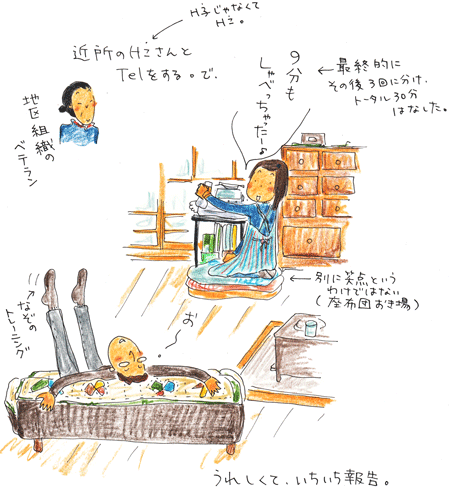 H子じゃなくて
Hﾐ。
近所のHﾐさんと
Telをする。で、
地区組織の
ベテラン
9分も
しゃべっちゃだーょ
最終的に
その後3回に分け、
トータル30分
はなした。
別に笑点という
わけではない
(座布団おき場)
なぞの
トレーニング
お
うれしくて、いちいち報告。